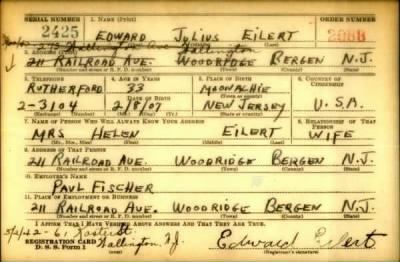 SERIAL NUMBER 1. NAME (Print) ORDER NUMBER
2425 EDWARD JULIUS EILERT 2088
Wallington
2. ADDRESS (Print)
211 RAILROAD AVE. WOODRIDGE BERGEN N.J.
(Number and street or R. F. D. number) (Town) (County) (State)
3. TELEPHONE 4. AGE IN YEARS 5. PLACE OF BIRTH 6. COUNTRY OF CITIZENSHIP
RUTHERFORD 33 MOONACHIE
DATE OF BIRTH
2-3104 2/8/07 NEW JERSEY U.S.A.
(Exchange) (Number) (Mo.) (Day) (Yr.) (State or country)
7. NAME OF PERSON WHO WILL ALWAYS KNOW YOUR ADDRESS 8. RELATIONSHIP OF THAT PERSON
MRS HELEN EILERT WIFE
(Mr., Mrs., Miss) (First) (Middle) (Last)
9. ADDRESS OF THAT PERSON
211 RAILROAD AVE. WOODRIDGE BERGEN N.J.
(Number and street or R. F. D. number) (Town) (County) (State)
10. EMPLOYER'S NAME
PAUL FISCHER
11. PLACE OF EMPLOYMENT OR BUSINESS
211 RAILROAD AVE. WOODRIDGE BERGEN N.J.
(Number and street or R. F. D. number) (Town) (County) (State)
I AFFIRM THAT I HAVE VERIFIED ABOVE ANSWERS AND THAT THEY ARE TRUE.
REGISTRATION CARD Wallington N.J. Edward Eilert
D. S. S. Form 1 (Registrant's signature)